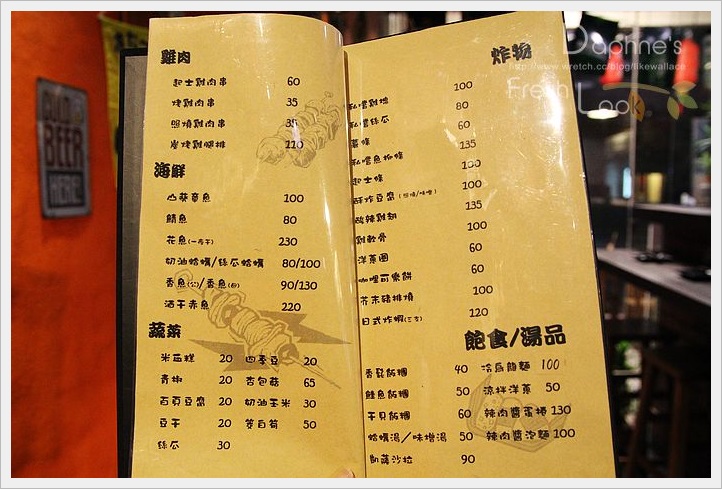 Daphne's
http://www.wretch.cc/blog/likewallace
Fresh Look
COLD
BEER
HERE
雞肉
起士雞肉串 60
烤雞肉串 35
照燒雞肉串 35
炭烤雞腿排 110
海鮮
山葵章魚 100
鯖魚 80
花魚(一夜干) 230
奶油蛤蠣/絲瓜蛤蠣 80/100
香魚(公)/香魚(母) 90/130
酒干赤魚 220
蔬菜
米血糕 20 四季豆 20
青椒 20 杏包菇 65
百頁豆腐 20 奶油玉米 30
豆干 20 茭白筍 50
絲瓜 30
炸物
私嚐雞塊 100
私嚐絲瓜 80
薯條 60
私嚐魚柳條 135
起士條 100
酥炸豆腐(照燒/味噌) 100
酸辣雞翅 135
雞軟骨 100
洋蔥圈 60
咖哩可樂餅 60
芥末豬排燒 100
日式炸蝦(三支) 120
飽食/湯品
香鬆飯糰 40 冷烏龍麵 100
鮭魚飯糰 50 涼拌洋蔥 50
干貝飯糰 60 辣肉醬蛋捲 130
蛤蠣湯/味增湯 50 辣肉醬泡麵 100
凱薩沙拉 90